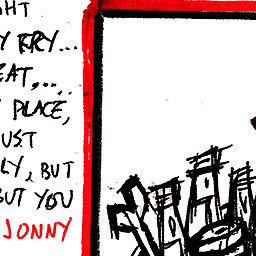 HT
Y TRY...
EAT,...
PLACE,
UST
LY, BUT
BUT YOU
JONNY